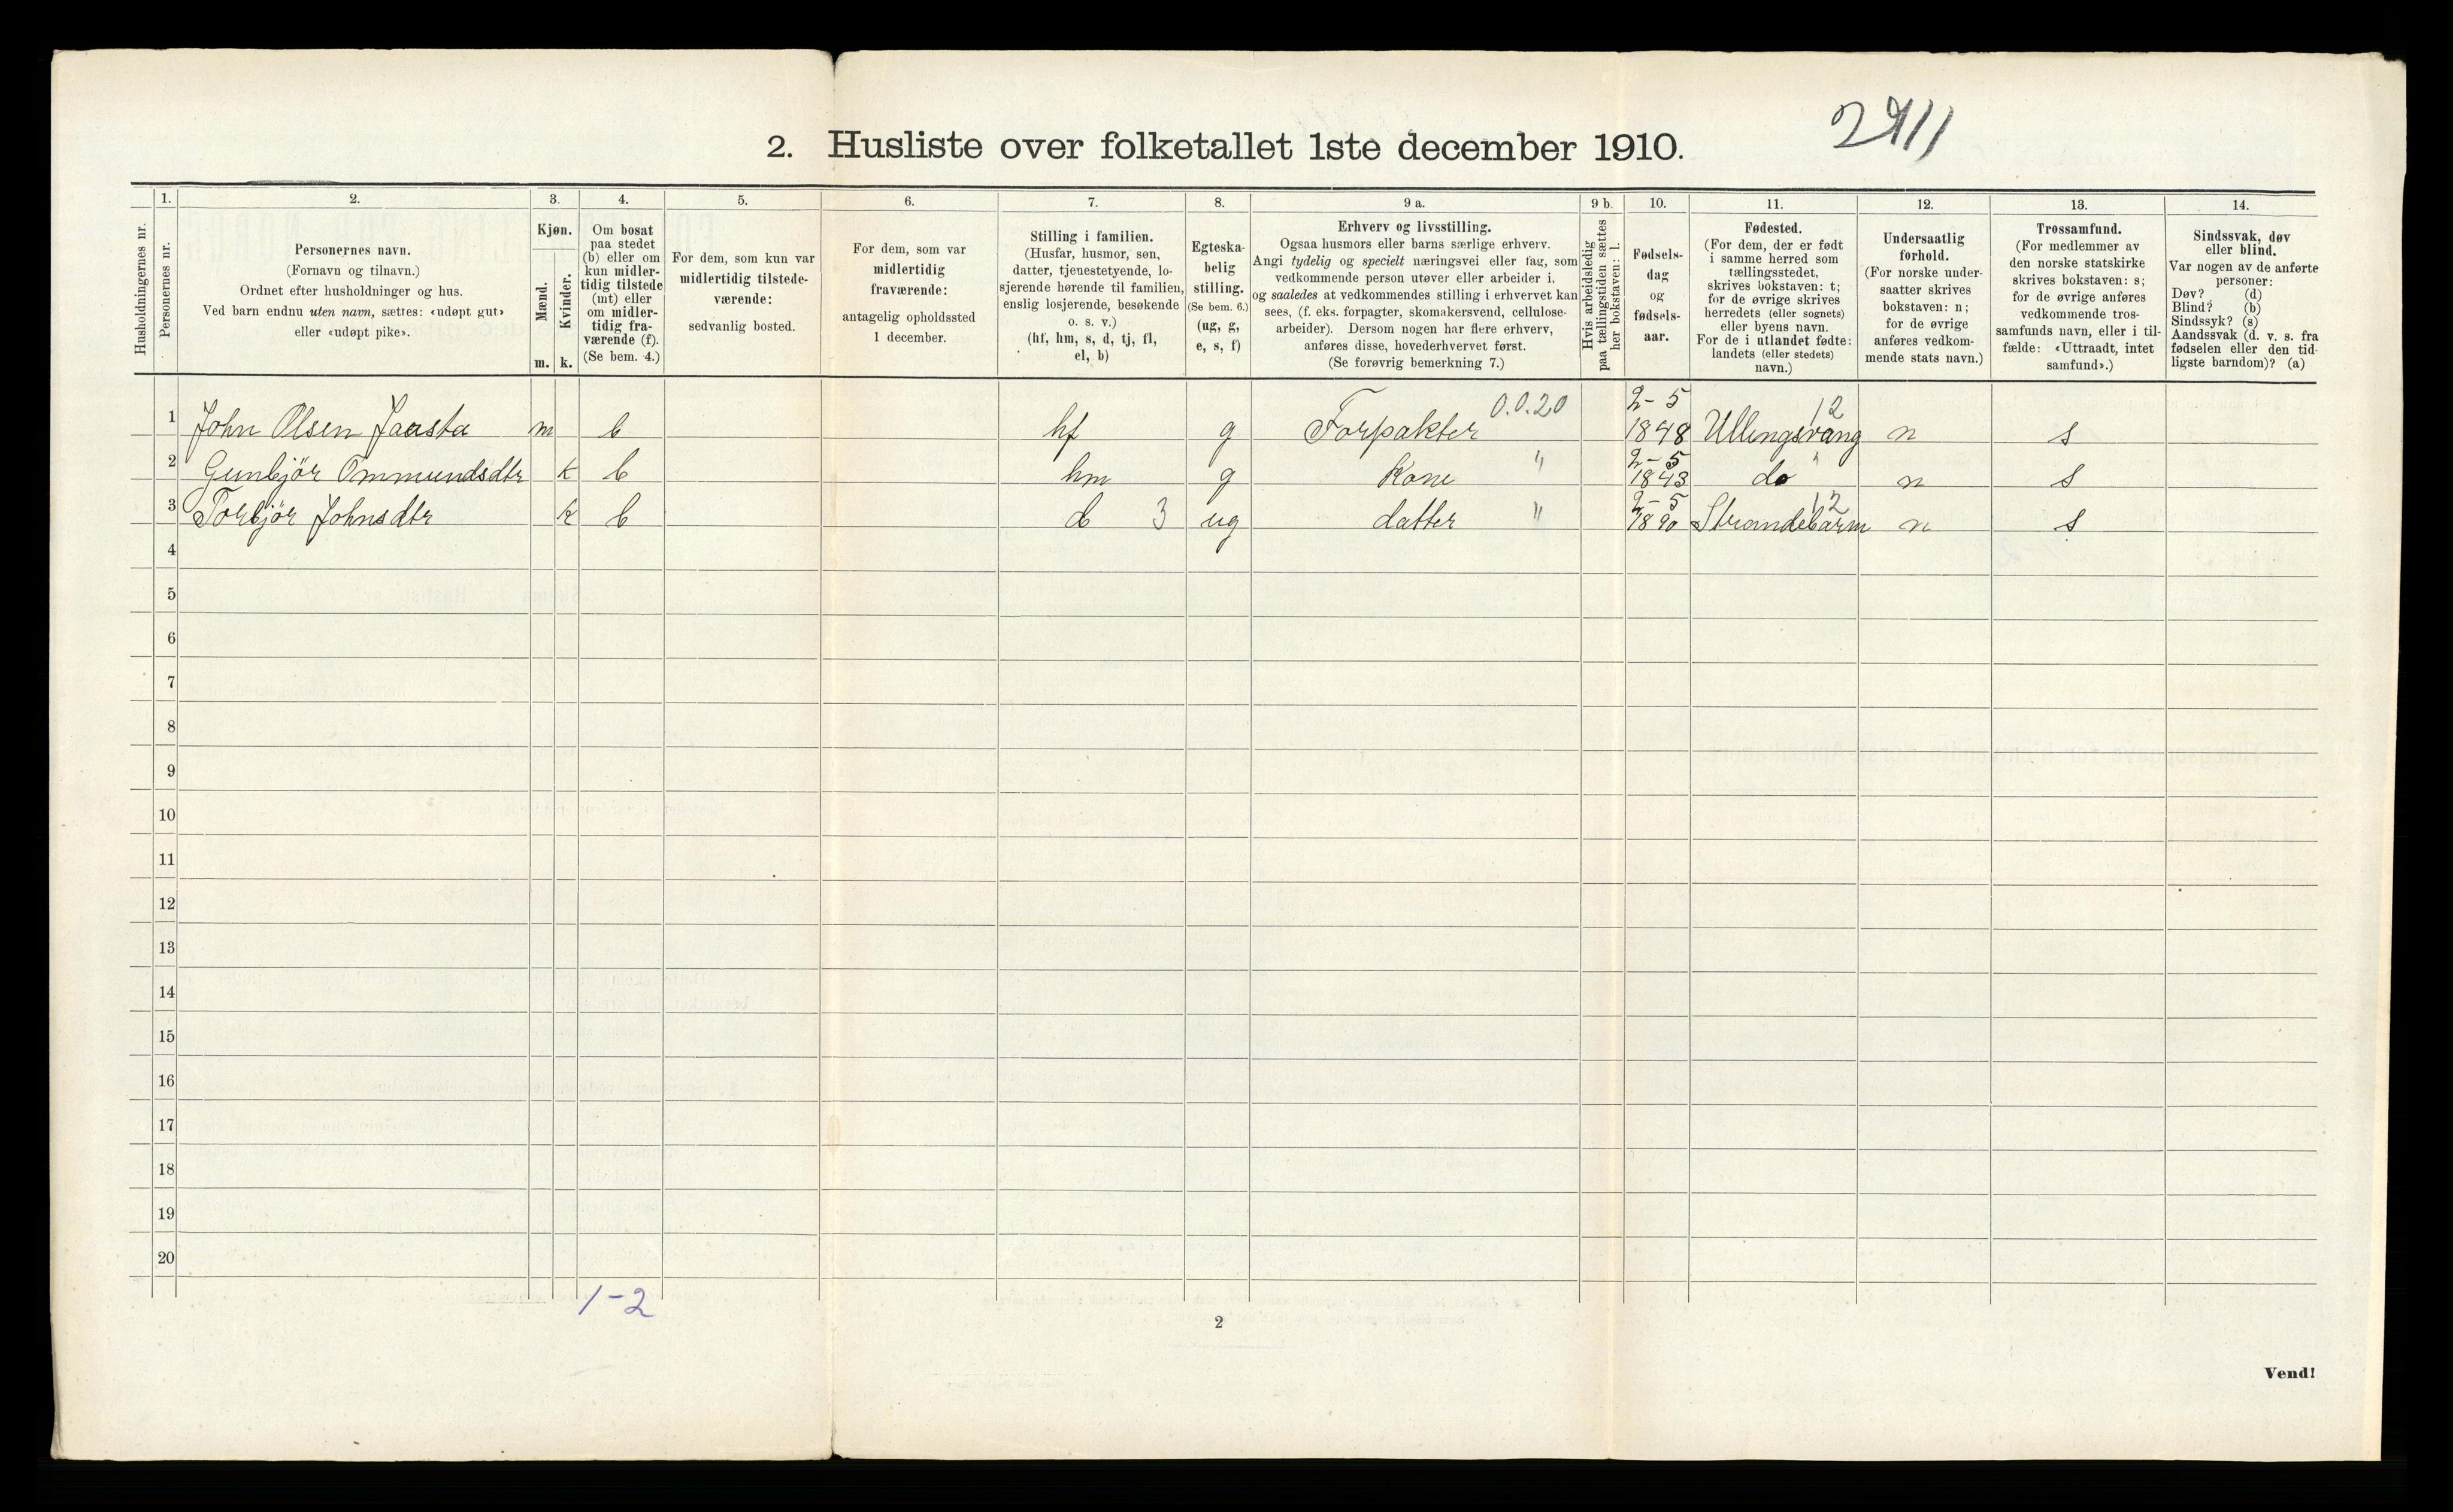 2. Husliste over folketallet 1ste december 1910.
Husholdningernes nr.
1.
Personernes nr.
2.
Personernes navn.
(Fornavn og tilnavn.)
Ordnet efter husholdninger og hus.
Ved barn endnu uten navn, sættes: «udøpt gut»
eller «udøpt pike».
3.
Kjøn.
Mænd.
Kvinder.
m. k.
4.
Om bosat
paa stedet
(b) eller om
kun midler-
tidig tilstede
(mt) eller
om midler-
tidig fra-
værende (f).
(Se bem. 4.)
5.
For dem, som kun var
midlertidig tilstede-
værende:
sedvanlig bosted.
6.
For dem, som var
midlertidig
fraværende:
antagelig opholdssted
1 december.
7.
Stilling i familien.
(Husfar, husmor, søn,
datter, tjenestetyende, lo-
sjerende hørende til familien,
enslig losjerende, besøkende
o. s. v.)
(hf, hm, s, d, tj, fl,
el, b)
8.
Egteska-
belig
stilling.
(Se bem. 6.)
(ug, g,
e, s, f)
9 a.
Erhverv og livsstilling.
Ogsaa husmors eller barns særlige erhverv.
Angi tydelig og specielt næringsvei eller fag, som
vedkommende person utøver eller arbeider i,
og saaledes at vedkommendes stilling i erhvervet kan
sees, (f. eks. forpagter, skomakersvend, cellulose-
arbeider). Dersom nogen har flere erhverv,
anføres disse, hovederhvervet først.
(Se forøvrig bemerkning 7.)
9 b.
Hvis arbeidsledig
paa tællingstiden sættes
her bokstaven: l.
10.
Fødsels-
dag
og
fødsels-
aar.
11.
Fødested.
(For dem, der er født
i samme herred som
tællingsstedet,
skrives bokstaven: t;
for de øvrige skrives
herredets (eller sognets)
eller byens navn.
For de i utlandet fødte:
landets (eller stedets)
navn.)
12.
Undersaatlig
forhold.
(For norske under-
saatter skrives
bokstaven: n;
for de øvrige
anføres vedkom-
mende stats navn.)
13.
Trossamfund.
(For medlemmer av
den norske statskirke
skrives bokstaven: s;
for de øvrige anføres
vedkommende tros-
samfunds navn, eller i til-
fælde: «Uttraadt, intet
samfund».)
14.
Sindssvak, døv
eller blind.
Var nogen av de anførte
personer:
Døv? (d)
Blind? (b)
Sindssyk? (s)
Aandssvak (d. v. s. fra
fødselen eller den tid-
ligste barndom)? (a)
1 John Olsen Jaasta m b hf g Forpakter 0.0.20 2-5 1848 Ullengsvang 12 n s
2 Gunbjör Ommundsdtr k b hm g Kone " 2-5 1843 do " n s
3 Torbjör Johnsdtr k b d 3 ug datter " 2-5 1890 Strandebarm 12 n s
4
5
6
7
8
9
10
11
12
13
14
15
16
17
18
19
20
1-2
2
Vend!